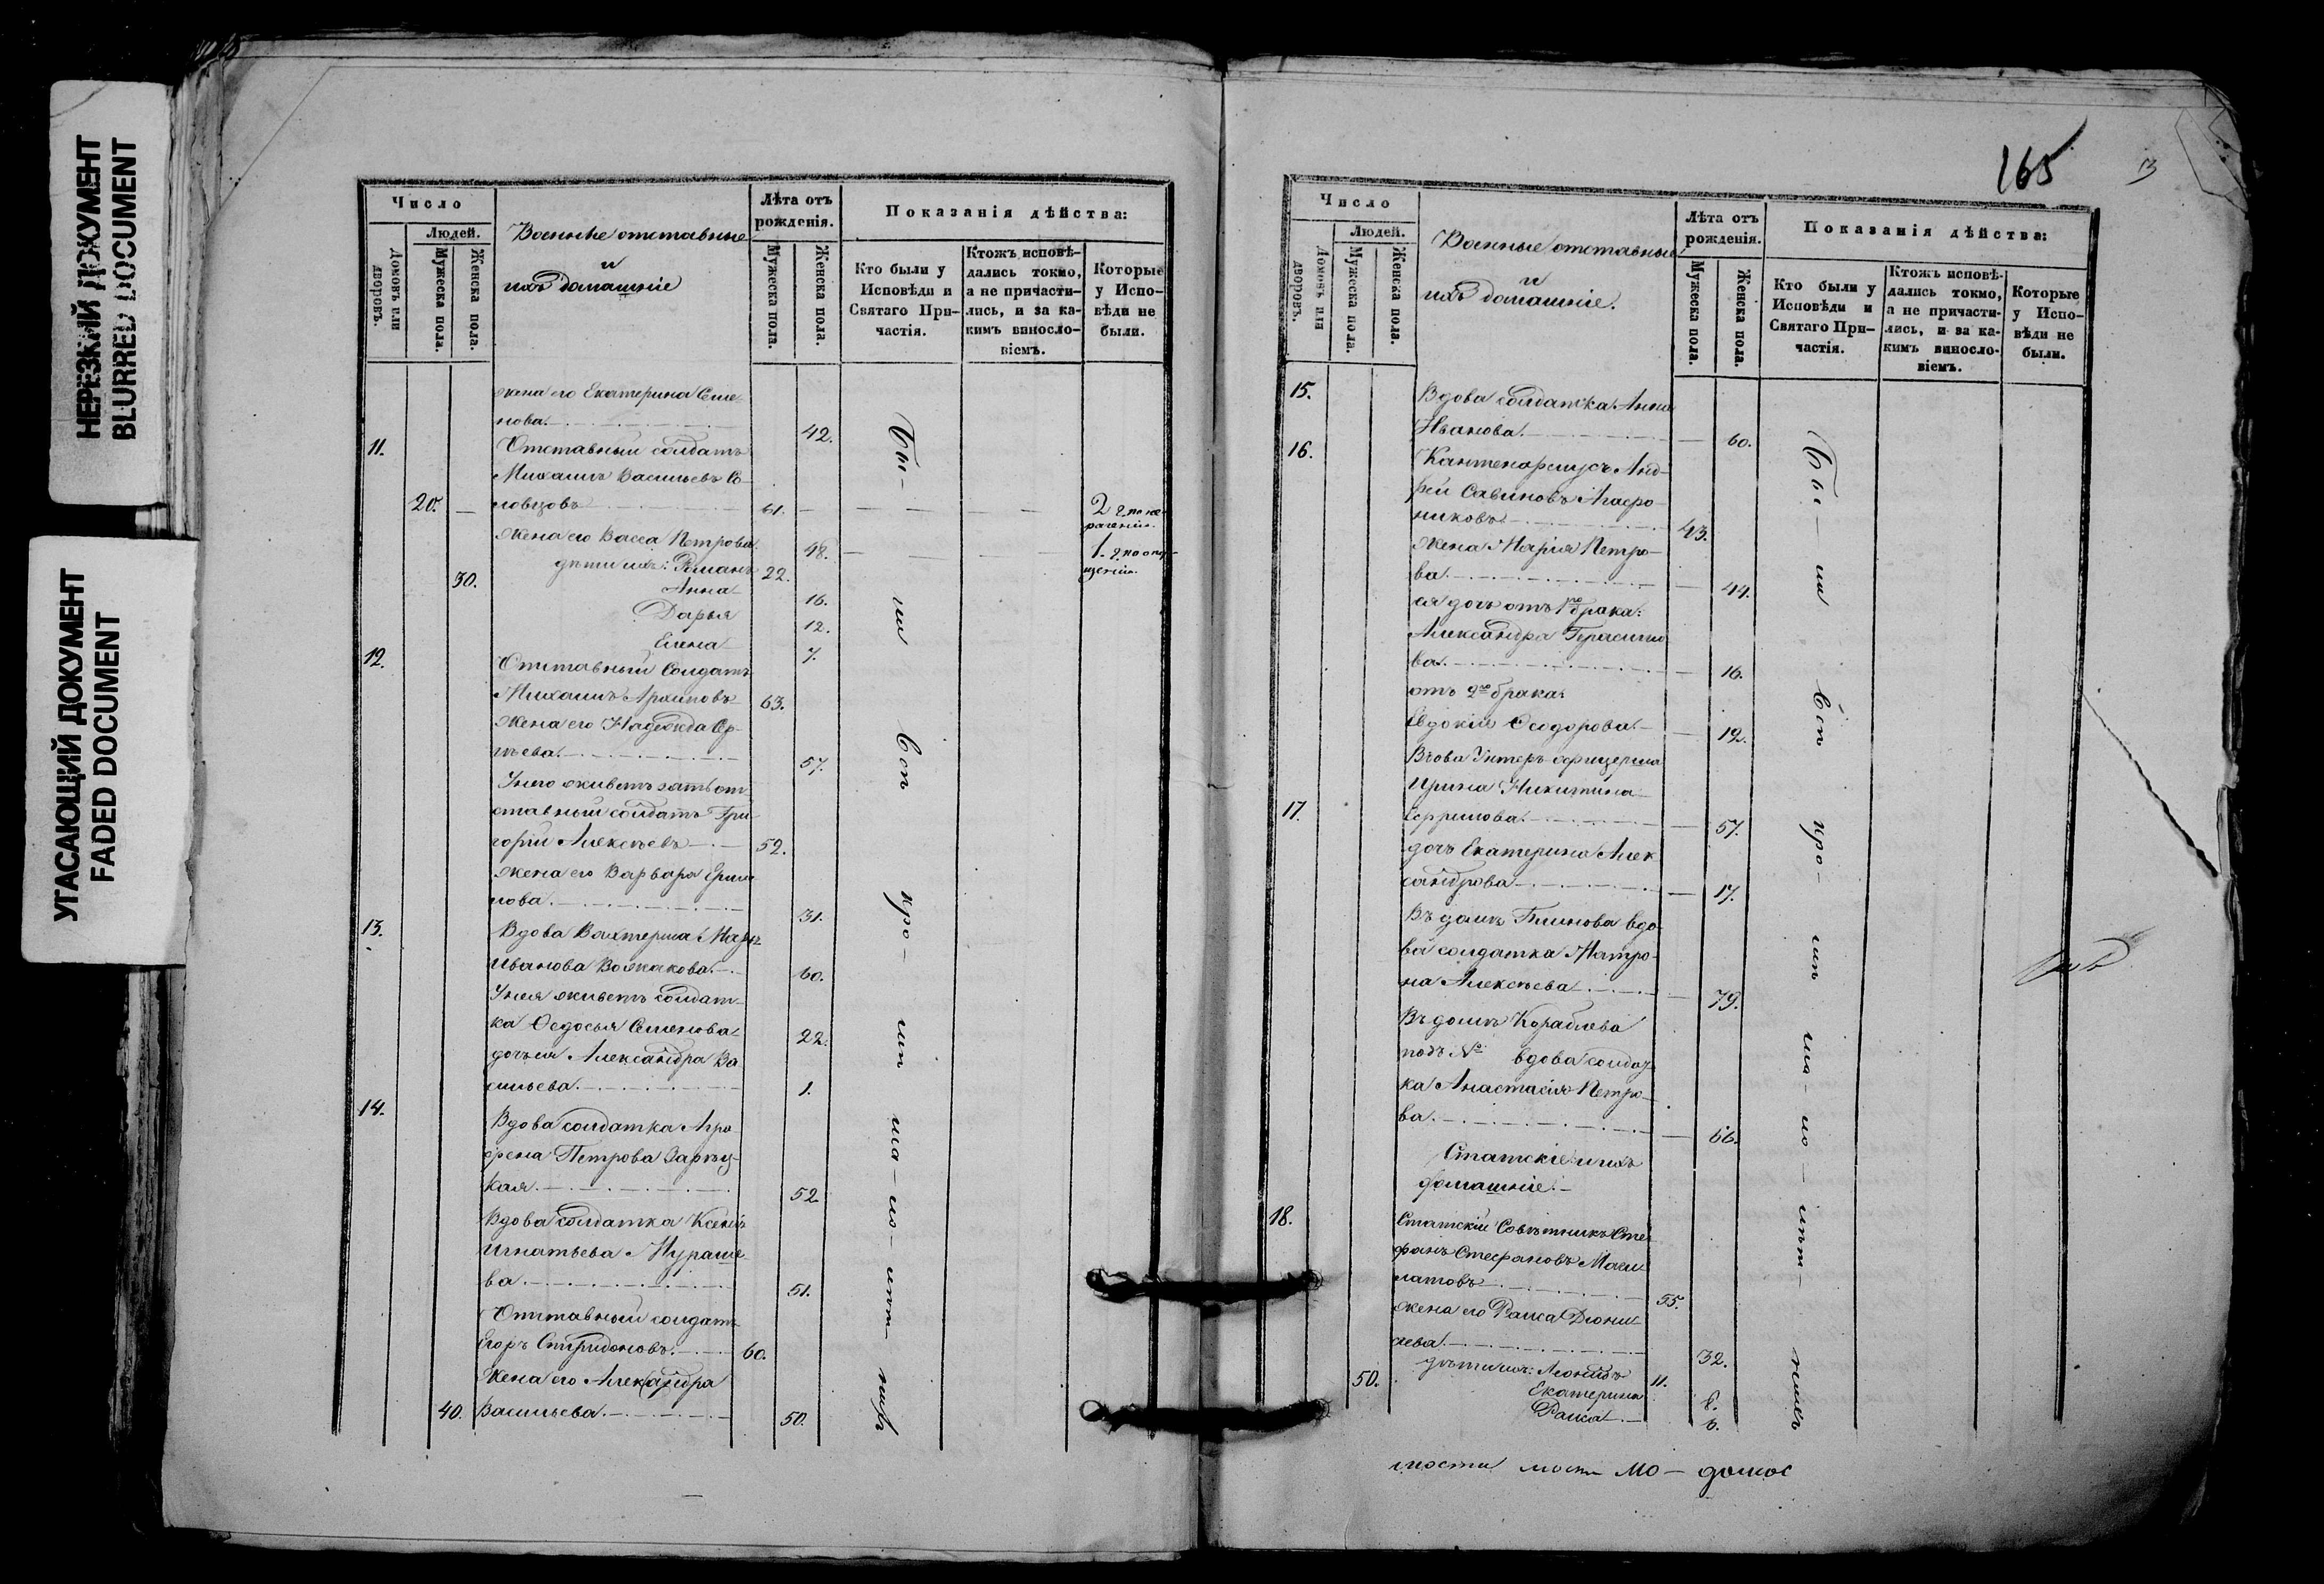 НЕРЕЗКИЙ ДОКУМЕНТ
BLURRED DOCUMENT
УГАСАЮЩИЙ ДОКУМЕНТ
FADED DOCUMENT
Число
Людей.
Домовъ или дворовъ.
Мужеска пола.
Женска пола.
Военные отставные
и
ихъ домашніе
Лѣта отъ рожденія.
Мужеска пола.
Женска пола.
Показанія дѣйства:
Кто были у Исповѣди и Святаго Причастія.
Ктожъ исповѣдались токмо, а не причастились, и за какимъ винословіемъ.
Которые у Исповѣди не были.
жена его Екатерина Семе
нова. 42.
11. Отставный солдатъ
Михаилъ Васильевъ Со
20. ловцовъ 61. 2 г. по не
раченію.
Жена его Васса Петрова. 48. 1. г. по опу
щенію.
дѣти ихъ: Романъ 22.
30. Анна 16.
Дарья 12.
Елена 7.
12. Отставный Солдатъ
Михаилъ Архиповъ 63.
Жена его Надежда Сер
гѣева. 57.
У него живетъ зять от
ставный солдатъ Гри
горій Алексѣевъ 52.
Жена его Варвара
лова. 31.
13. Вдова Вахтерша Марья
Иванова 60.
У нея живетъ солдат
ка Ѳедосья Семенова 22.
дочь ея Александра Ва
сильева. 1.
14. Вдова солдатка Агро
фена Петрова
кая. 52
Вдова солдатка Ксенія
Игнатьева Мураше
ва 51.
Отставный солдатъ
Егоръ Спиридоновъ. 60.
Жена его Александра
40. Васильева. 50.
165
Число
Людей.
Домовъ или дворовъ.
Мужеска пола.
Женска пола.
Военные отставные
и
ихъ домашніе.
Лѣта отъ рожденія.
Мужеска пола.
Женска пола.
Показанія дѣйства:
Кто были у Исповѣди и Святаго Причастія.
Ктожъ исповѣдались токмо, а не причастились, и за какимъ винословіемъ.
Которые у Исповѣди не были.
15. Вдова солдатка Анна
Иванова. 60.
16. Кантенармусъ Анд
рей Савиновъ Агафо
никовъ 43.
Жена Марія Петро
ва. 44.
ея дочь отъ 1го брака:
Александра Герасимо
ва. 16.
отъ 2го брака:
Евдокія Ѳеодорова. 12.
Вдова Унтеръ-офицерша
Ирина Никитина
17. Ефримова. 57.
дочь Екатерина Алек
сандрова 17.
Въ домѣ вдо
ва солдатка Матро
на Алексѣева 79.
Въ домѣ Кораблева
подъ № вдова солдат
ка Анастасія Петро
ва. 66.
Статскіе и ихъ
домашніе.
18. Статскій Совѣтникъ Сте
фанъ Стефановъ
латовъ 55.
жена его Раиса Діони
сіева. 32.
50. дѣти ихъ: Леонидъ 11.
Екатерина 8.
Раиса 6.